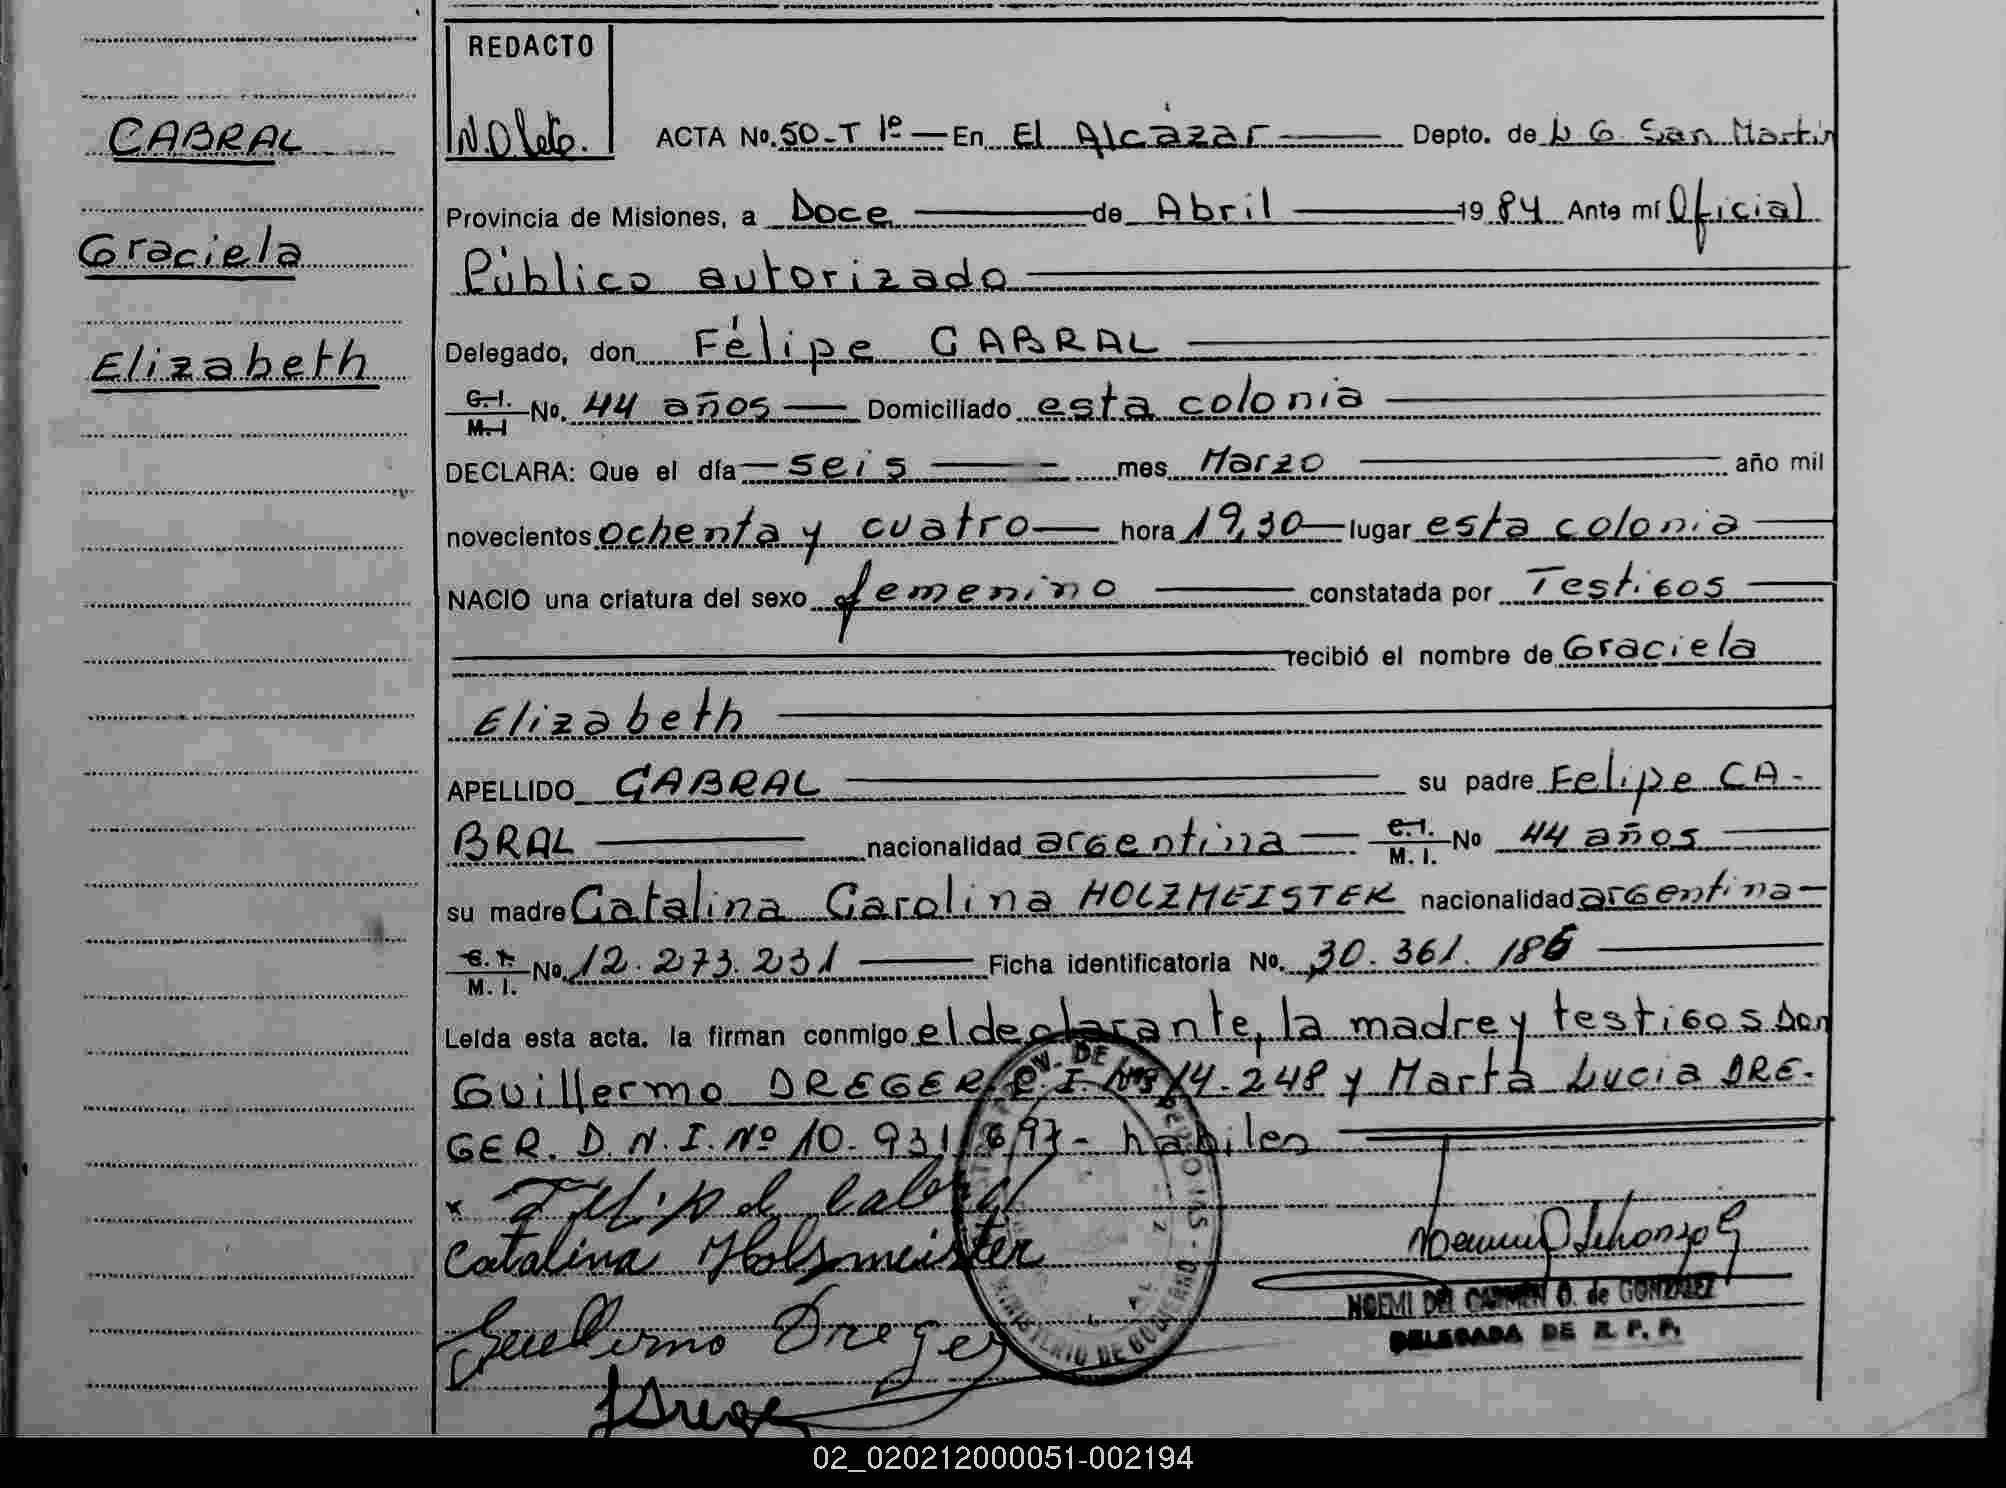 CABRAL
Graciela
Elizabeth
REDACTO
ACTA No. 50-T 1º — En El Alcázar — Depto. de L G. San Martín
Provincia de Misiones, a Doce — de Abril — 19 84 Ante mí Oficial
Público autorizado
Delegado, don Félipe CABRAL
C.I. M.I No. 44 años — Domiciliado esta colonia
DECLARA: Que el día seis — mes Marzo — año mil
novecientos ochenta y cuatro — hora 19,30 — lugar esta colonia
NACIO una criatura del sexo femenino — constatada por Testigos
recibió el nombre de Graciela
Elizabeth
APELLIDO CABRAL — su padre Felipe CA-
BRAL — nacionalidad argentina — C.I. M. I. No 44 años
su madre Catalina Carolina HOLZMEISTER nacionalidad argentina —
C. I. M. I. No. 12.273.231 — Ficha identificatoria No. 30.361.186
Leída esta acta. la firman conmigo el declarante, la madre y testigos Don
Guillermo DREGER 14.248 y Marta Lucia DRE-
GER. D.N.I. Nº 10.931.697- habiles
Felipe Cabral
Catalina Holsmeister
Guillermo Dreger
NOEMI DEL CARMEN O. de GONZALEZ
DELEGADA DE R. P. P.
MINISTERIO DE GOBIERNO
02_020212000051-002194